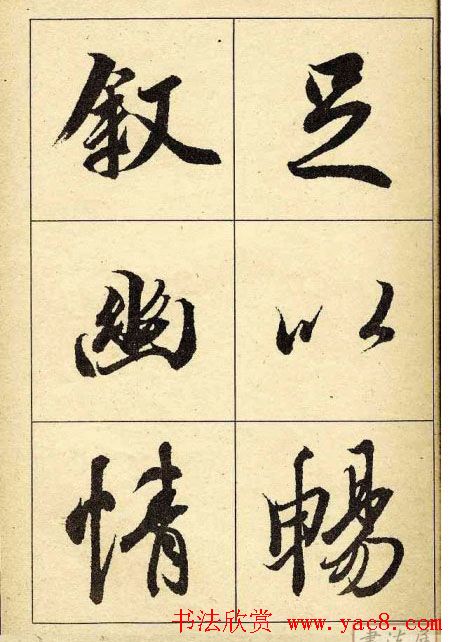 足以暢
叙幽情
书法欣赏 :www.yac8.com